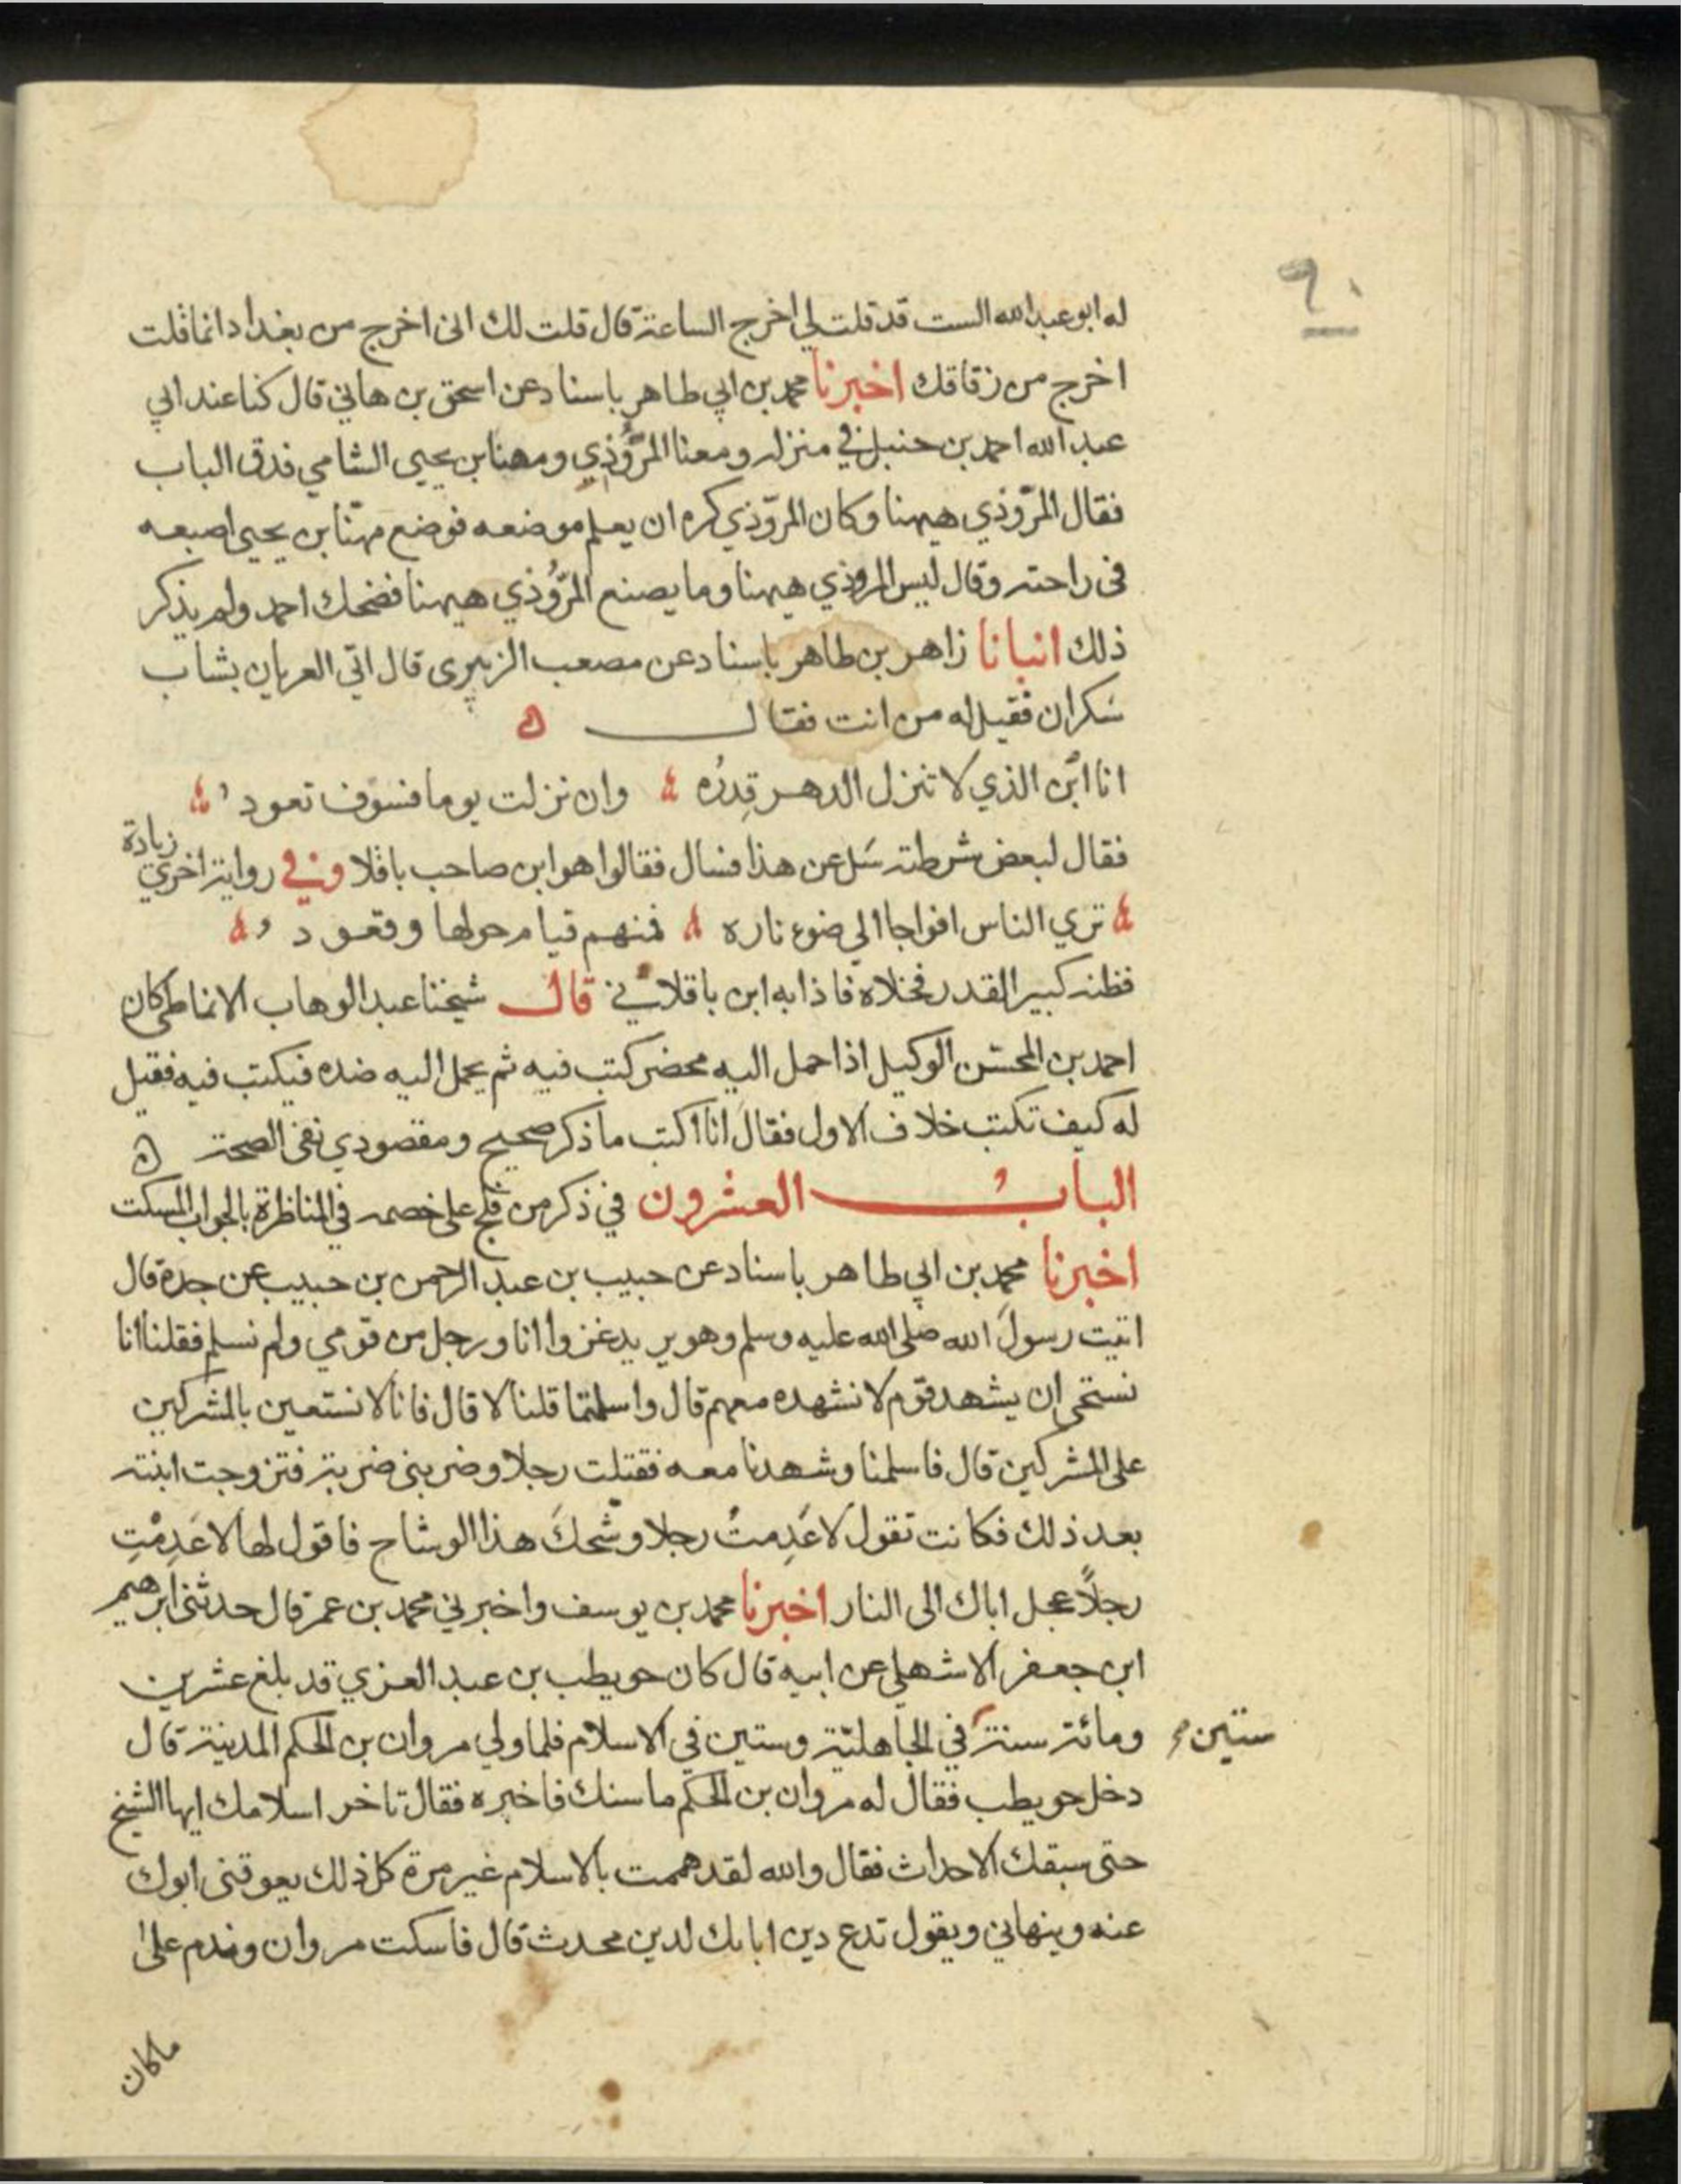 ٩٠
له ابو عبد الله الست قد قلت لي اخرج الساعة قال قلت لك اني اخرج من بغداد انما قلت
اخرج من زقاقك اخبرنا محمد بن ابي طاهر باسناد عن اسحق بن هاني قال كنا عند ابي
عبد الله احمد بن حنبل في منزله ومعنا المرُّوذي ومهنا بن يحيى الشامي فدق الباب
فقال المرّوذي ههنا وكان المرّوذي كره ان يعلم موضعه فوضع مهنّا بن يحيى اصبعه
في راحته وقال ليس المروذي ههنا وما يصنع المرُّوذي ههنا فضحك احمد ولم يذكر
ذلك انبانا زاهر بن طاهر باسناد عن مصعب الزبيرى قال اتي العريان بشاب
سَكران فقيل له من انت فقال ه
انا ابْن الذي لا تنزل الدهر قِدرُه وان نزلت يوما فسوف تعود
فقال لبعض شرطته سَل عن هذا فسال فقالوا هو ابن صاحب باقلا وفي رواية اخري زيادة
تري الناس افواجا الي ضوء ناره فمنهم قيام حولها وقعود
فظنه كبير القدر فخلاه فاذا به ابن باقلاني قال شيخنا عبد الوهاب الانماطي كان
احمد بن المحسّن الوكيل اذا حمل اليه محضر كتب فيه ثم يحمل اليه ضده فيكتب فيه فقيل
له كيف تكتب خلاف الاول فقال انا اكتب ما ذكر صحيح ومقصودي نفي الصحة ه
الباب العشرون في ذكر من فلج على خصمه في المناظرة بالجواب المسكت
اخبرنا محمد بن ابي طاهر باسناد عن حبيب بن عبد الرحمن بن حبيب عن جده قال
اتيت رسولَ الله صلى الله عليه وسلم وهو يريد غزوا انا ورجل من قومي ولم نسلم فقلنا انا
نستحي ان يشهد قوم لا نشهده معهم قال واسلمتما قلنا لا قال فانا لا نستعين بالمشركين
على المشركين قال فاسلمنا وشهدنا معه فقتلت رجلا وضربني ضربة فتزوجت ابنته
بعد ذلك فكانت تقول لا عَدِمتُ رجلا وشّحكَ هذا الوشاح فاقول لها لا عَدِمْتِ
رجلاً عجل اباك الى النار اخبرنا محمد بن يوسف واخبرني محمد بن عمر قال حدثني ابرهيم
ابن جعفر الاشهلي عن ابيه قال كان حويطب بن عبد العزي قد بلغ عشرين
ومائة سنة في الجاهليّة وستين في الاسلام فلما ولي مروان بن الحكم المدينة قال
ستين
دخل حويطب فقال له مروان بن الحكم ما سنك فاخبره فقال تاخر اسلامك ايها الشيخ
حتى سبقك الاحداث فقال والله لقد هممت بالاسلام غير مرة كل ذلك يعوقني ابوك
عنه وينهاني ويقول تدع دين ابابك لدين محدث قال فاسكت مروان وندم على
ما كان